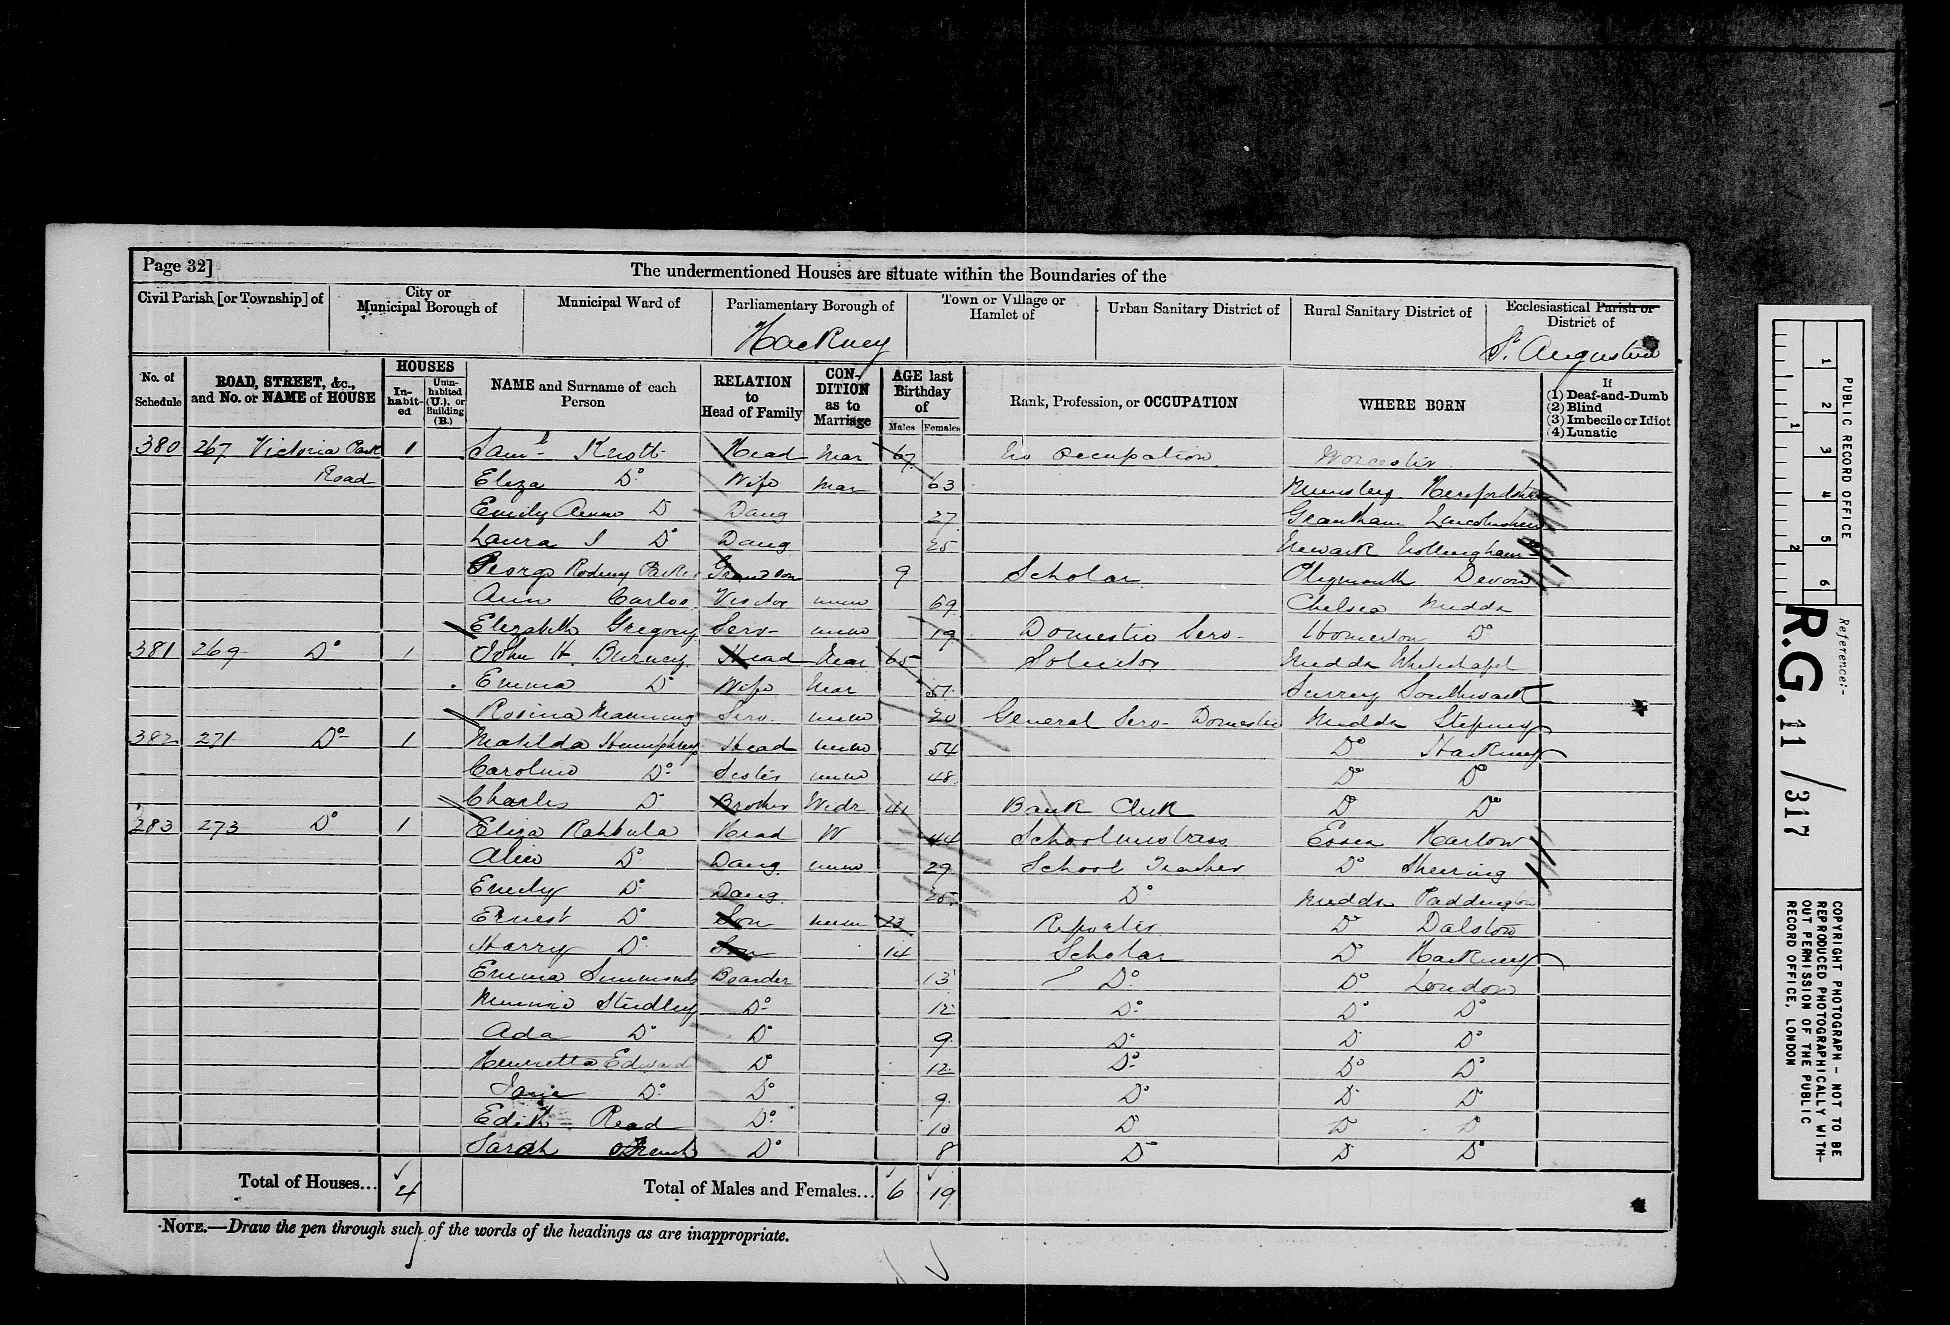 Page 32]
The undermentioned Houses are situate within the Boundaries of the
Civil Parish [or Township] of
City or Municipal Borough of
Municipal Ward of
Parliamentary Borough of
Hackney
Town or Village or Hamlet of
Urban Sanitary District of
Rural Sanitary District of
Ecclesiastical Parish or District of
St. Augustine
No. of Schedule
ROAD, STREET, &c., and No. or NAME of HOUSE
HOUSES
In-habit-ed
Unin-habited (U.), or Building (B.)
NAME and Surname of each Person
RELATION to Head of Family
CON-DITION as to Marriage
AGE last Birthday of
Males
Females
Rank, Profession, or OCCUPATION
WHERE BORN
If
(1) Deaf-and-Dumb
(2) Blind
(3) Imbecile or Idiot
(4) Lunatic
380 267 Victoria Park 1 Saml Knott Head Mar 67 No Occupation Worcester
Road Eliza Do Wife Mar 63 Herefordshire
Emily Anne D Daug 27 Grantham Lincolnshire
Laura J Do Daug 25 Newark Nottingham
George Rodney Parker Grandson 9 Scholar Plymouth Devon
Ann Carlos Visitor unm 69 Chelsea Middx
Elizabeth Gregory Serv unm 19 Domestic Serv Homerton Do
381 269 Do 1 John H. Burney Head Mar 65 Solicitor Middx Whitechapel
Emma Do Wife Mar 51 Surrey Southwark
Rosina Manning Serv. unm 20 General Serv Domestic Middx Stepney
382 271 Do 1 Matilda Humphreys Head unm 54 Do Hackney
Caroline Do Sister unm 48 Do Do
Charles D Brother Widr 41 Bank Clerk D Do
283 273 Do 1 Eliza Rabbula Head W 44 Schoolmistress Essex Harlow
Alice Do Daug unm 29 School Teacher Do Sheering
Emily Do Daug 25 Do Middx Paddington
Ernest Do Son unm 23 Reporter D Dalston
Harry Do Son 14 Scholar D Hackney
Emma Simmonds Boarder 13 Do Do London
Minnie Studley Do 12 Do Do Do
Ada Do Do 9 Do D Do
Henrietta Edward D 12 Do Do Do
Janie Do Do 9 Do D D
Edith Read Do 10 D D D
Sarah French Do 8 Do D Do
Total of Houses... 4
Total of Males and Females... 6 19
NOTE.—Draw the pen through such of the words of the headings as are inappropriate.
PUBLIC RECORD OFFICE
1 2 3 4 5 6
1 2
Reference:-
R.G. 11 / 317
COPYRIGHT PHOTOGRAPH - NOT TO BE
REPRODUCED PHOTOGRAPHICALLY WITH-
OUT PERMISSION OF THE PUBLIC
RECORD OFFICE, LONDON